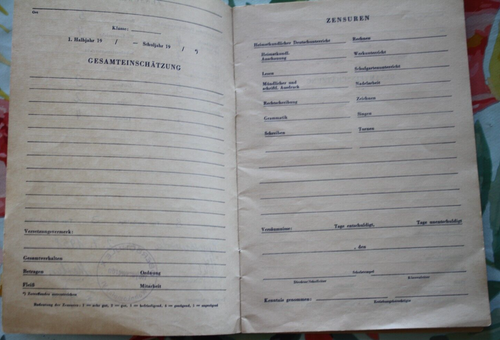 Klasse:
1. Halbjahr 19 / — Schuljahr 19 / *)
GESAMTEINSCHÄTZUNG
Versetzungsvermerk:
Gesamtverhalten
Betragen Ordnung
Fleiß Mitarbeit
ZENSUREN
Heimatkundlicher Deutschunterricht Rechnen
Heimatkundl. Anschauung Werkunterricht
Lesen Schulgartenunterricht
Mündlicher und schriftl. Ausdruck Nadelarbeit
Rechtschreibung Zeichnen
Grammatik Singen
Schreiben Turnen
Versäumnisse: Tage entschuldigt, Tage unentschuldigt
, den
Direktor/Schulleiter Schulstempel Klassenleiter
Kenntnis genommen:
Erziehungsberechtigter